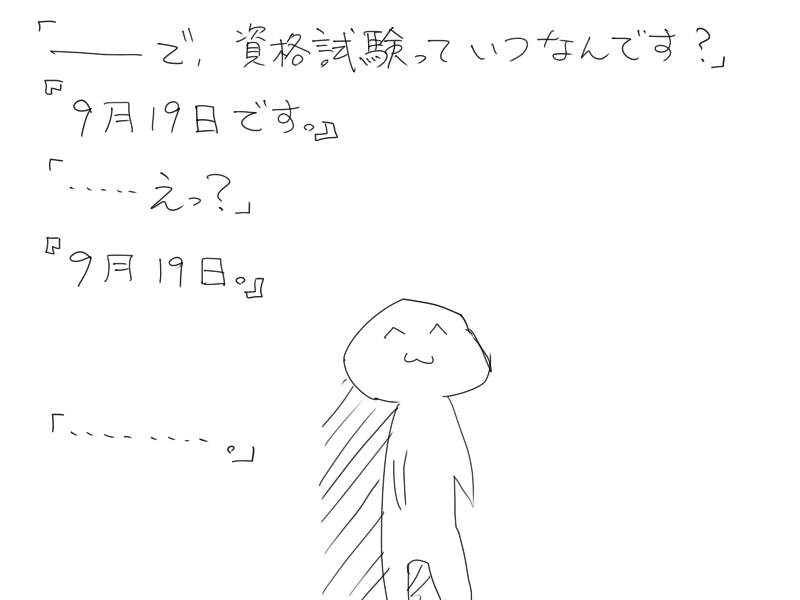 「――で、資格試験っていつなんです?」
『9月19日です。』
「……えっ?」
『9月19日。』
「………。」